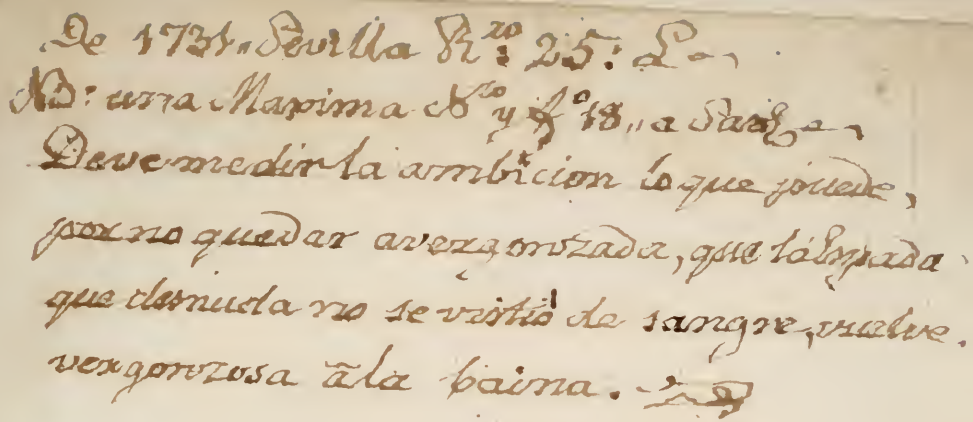 De 1731,, Sevilla R.ro 25: L
NB: una Maxima N.ro y f.o 18,, a
Deve medir la ambicion lo que puede,
por no quedar avergonzada, que la espada
que desnuda no se vistiò de sangre, vuelve
vergonzosa ã la baina.